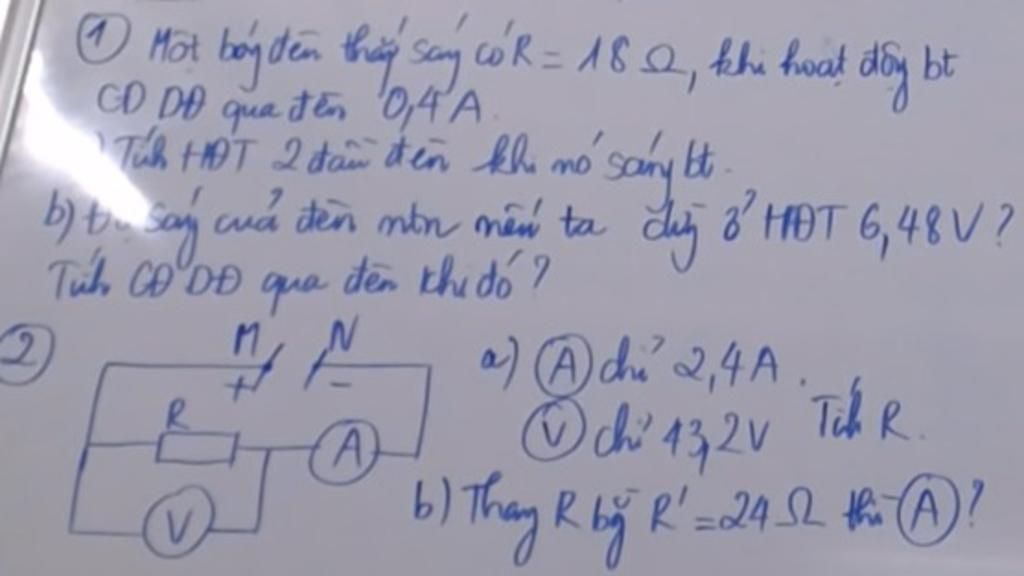 ① Một bóng đèn thắp sáng có R = 18 Ω, khi hoạt động bt
CĐ DĐ qua đèn 0,4 A.
) Tính HĐT 2 đầu đèn khi nó sáng bt.
b) Độ sáng của đèn ntn nếu ta dùng ở HĐT 6,48V?
Tính CĐ DĐ qua đèn khi đó?
②
M N
+ -
R
A
V
a) Ⓐ chỉ 2,4A.
Ⓥ chỉ 43,2V Tính R.
b) Thay R bằng R' = 24 Ω thì Ⓐ?